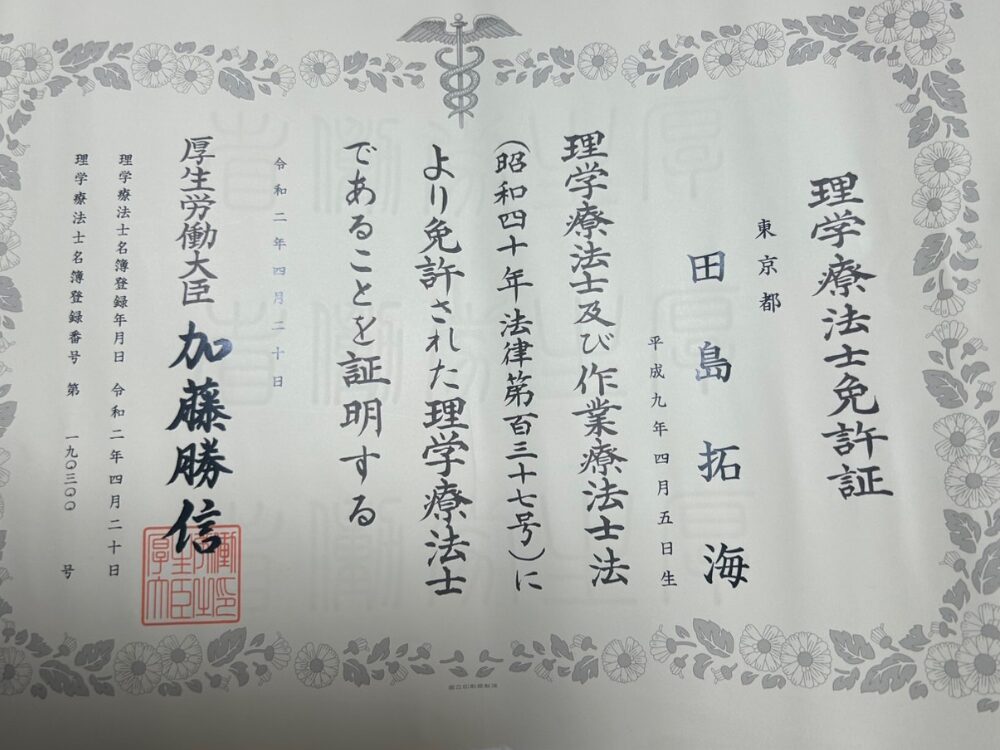 理学療法士免許証
東京都
田島拓海
平成九年四月五日生
理学療法士及び作業療法士法
(昭和四十年法律第百三十七号)に
より免許された理学療法士
であることを証明する
令和二年四月二十日
厚生労働大臣 加藤勝信
理学療法士名簿登録年月日 令和二年四月二十日
理学療法士名簿登録番号 第 一九〇三〇〇 号